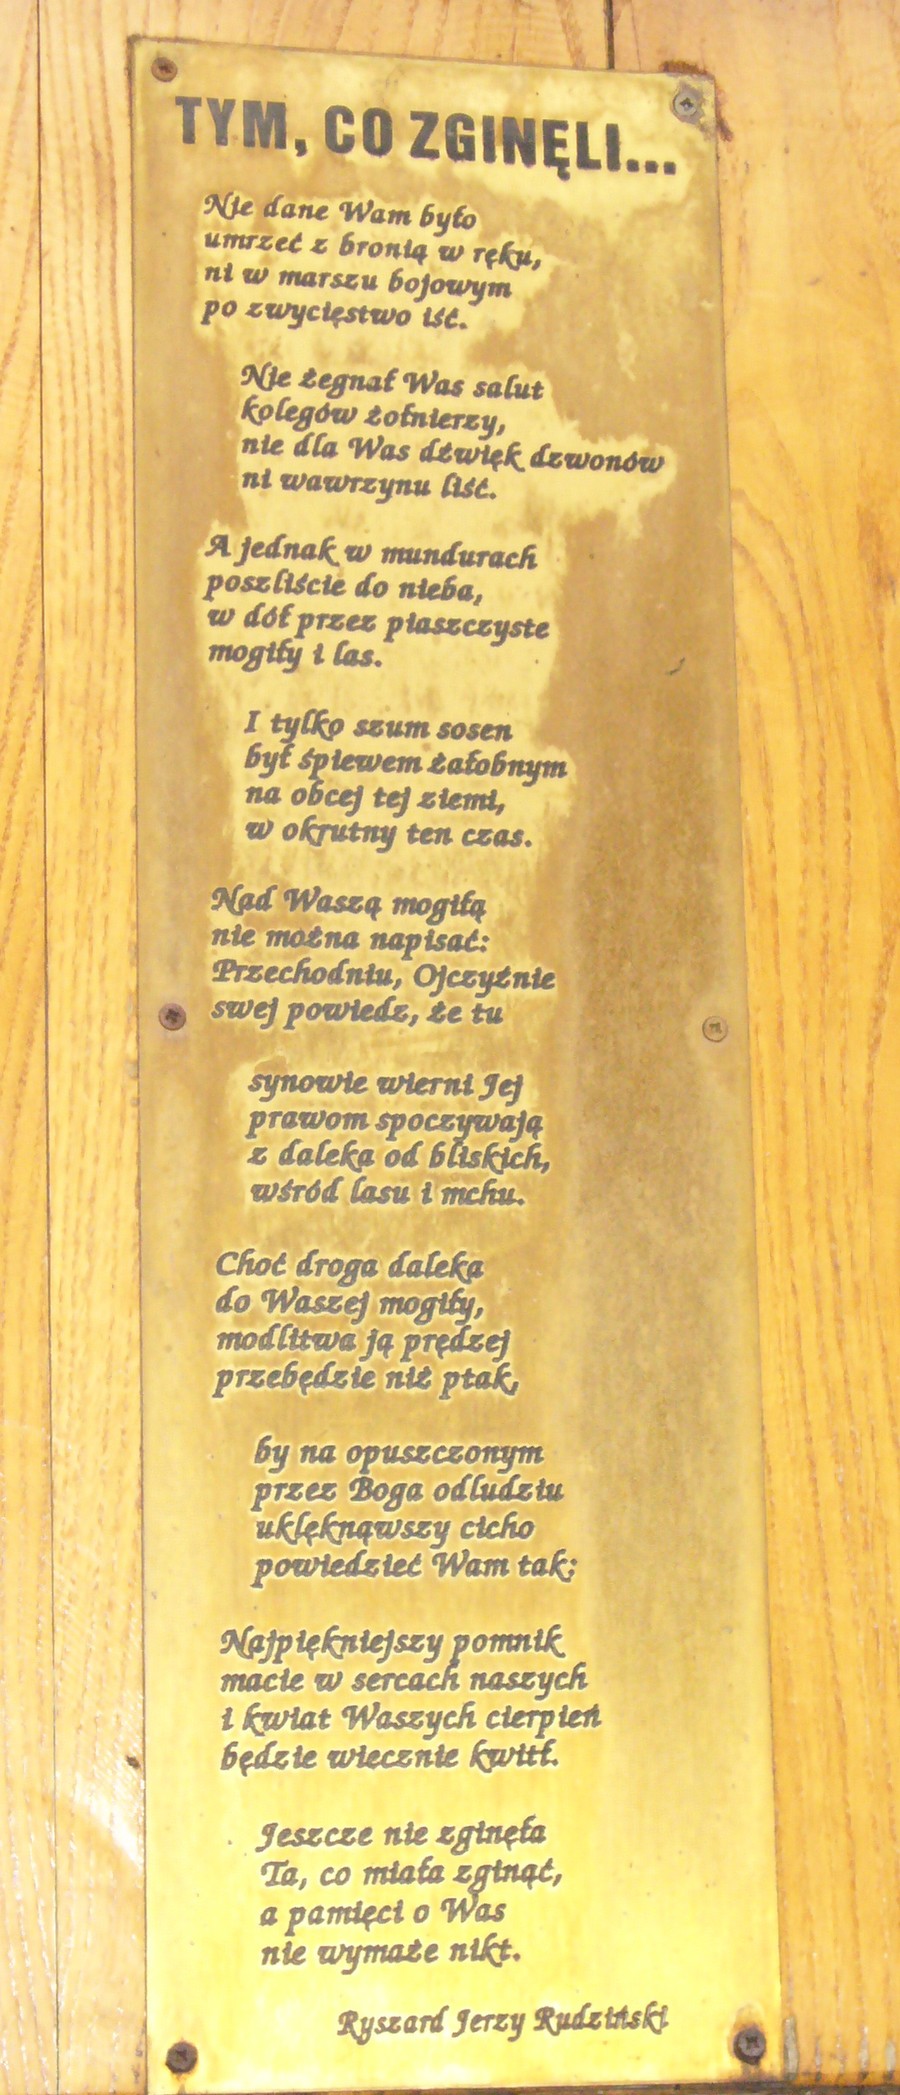 TYM, CO ZGINĘLI...
Nie dane Wam było
umrzeć z bronią w ręku,
ni w marszu bojowym
po zwycięstwo iść.
Nie żegnał Was salut
kolegów żołnierzy,
nie dla Was dźwięk dzwonów
ni wawrzynu liść.
A jednak w mundurach
poszliście do nieba,
w dół przez piaszczyste
mogiły i las.
I tylko szum sosen
był śpiewem żałobnym
na obcej tej ziemi,
w okrutny ten czas.
Nad Waszą mogiłą
nie można napisać:
Przechodniu, Ojczyźnie
swej powiedz, że tu
synowie wierni Jej
prawom spoczywają
z daleka od bliskich,
wśród lasu i mchu.
Choć droga daleka
do Waszej mogiły,
modlitwa ją prędzej
przebędzie niż ptak,
by na opuszczonym
przez Boga odludziu
uklęknąwszy cicho
powiedzieć Wam tak:
Najpiękniejszy pomnik
macie w sercach naszych
i kwiat Waszych cierpień
będzie wiecznie kwitł.
Jeszcze nie zginęła
Ta, co miała zginąć,
a pamięci o Was
nie wymaże nikt.
Ryszard Jerzy Rudziński